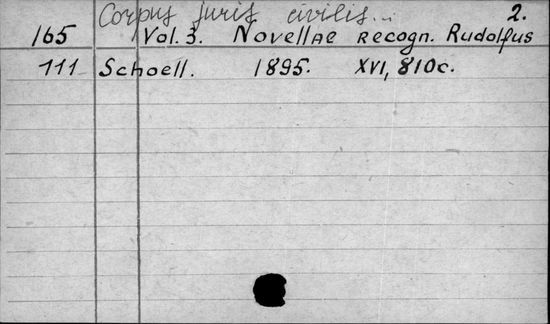 Corpus juris civilis... 2.
165 Vol. 3. Novellae recogn. Rudolfus
111 Schoell. 1895. XVI, 810c.